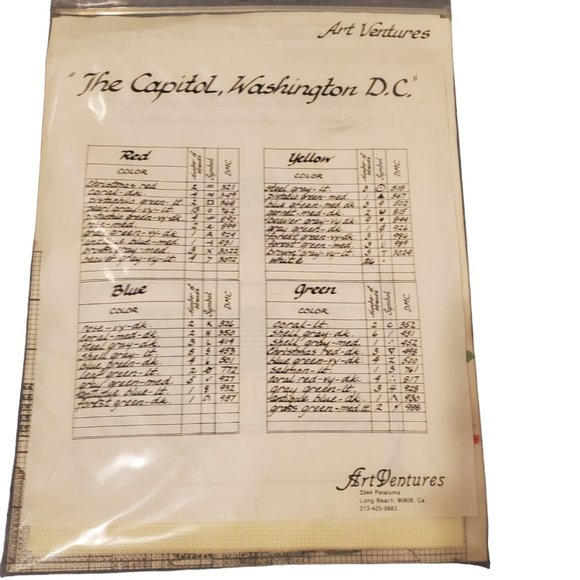 Art Ventures
"The Capitol, Washington D.C."
Red
COLOR Number of Strands Symbol DMC
christmas red 2 321
coral-dk.
pistachio green-lt. 2 368
pearl gray-vy-lt. 762
pistachio green-vy-dk
rose-med. 899
gray green-vy-dk. 924
antique blue-med 1 931
brown gray-med 1 3022
beaver gray-vy-lt. 3072
Yellow
COLOR Number of Strands Symbol DMC
steel gray-lt. 318
pistach. green-med. 367
blue green-med-dk 3 502
garnet-med-dk 2 815
beaver gray-vy-dk 844
gray green-dk. 926
forest green-vy-dk. 986
forest green-med. 989
brown gray-vy-lt. 3 3024
white
Blue
COLOR Number of Strands Symbol DMC
rose-vy-dk. 2 326
coral-med-dk 2 350
steel gray-dk. 3 414
shell gray-lt. 8 453
blue green-dk. 4 501
leaf green-lt. 2 772
gray green-med. 5 927
antique blue-lt. 1 932
forest green-dk. 1 987
Green
COLOR Number of Strands Symbol DMC
coral-lt. 2 352
shell gray-dk. 6 451
shell gray-med 452
christmas red-dk. 3 498
blue green-vy-dk. 2 500
salmon-lt. 1 3 761
coral red-vy-dk. 817
gray green-lt. 3 4 928
antique blue-dk. 1 930
grass green-med lt. 2 988
Art Ventures
3344 Petaluma
Long Beach, 90808, Ca
213-425-9683